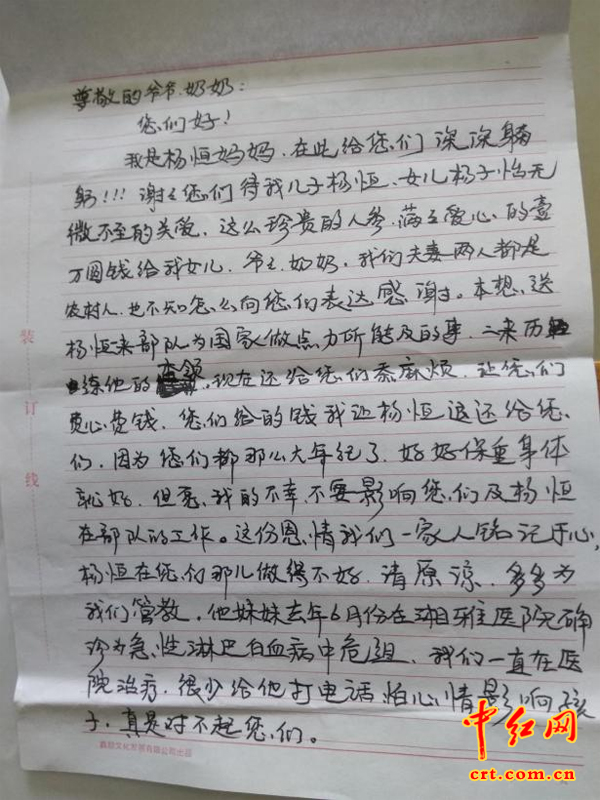 尊敬的爷爷.奶奶：
您们好！
我是杨恒妈妈，在此给您们深深鞠
躬！！！谢谢您们待我儿子杨恒、女儿杨子怡无
微不至的关爱，这么珍贵的人参，满满爱心的壹
万圆钱给我女儿，爷爷奶奶，我们夫妻两人都是
农村人，也不知怎么向您们表达感谢。本想，送
杨恒来部队为国家做点力所能及的事，二来历
练他的本领，现在还给您们添麻烦，让您们
费心费钱，您们给的钱我让杨恒退还给您
们，因为您们都那么大年纪了，好好保重身体
就好，但愿，我的不幸，不要影响您们及杨恒
在部队的工作。这份恩情我们一家人铭记于心，
杨恒在您们那儿做得不好，清原谅，多多为
我们管教，他妹妹去年6月份在湘雅医院确
诊为急性淋巴白血病中危组，我们一直在医
院治疗，很少给他打电话怕心情影响孩
子，真是对不起您们。
装
订
线
中红网
crt.com.cn